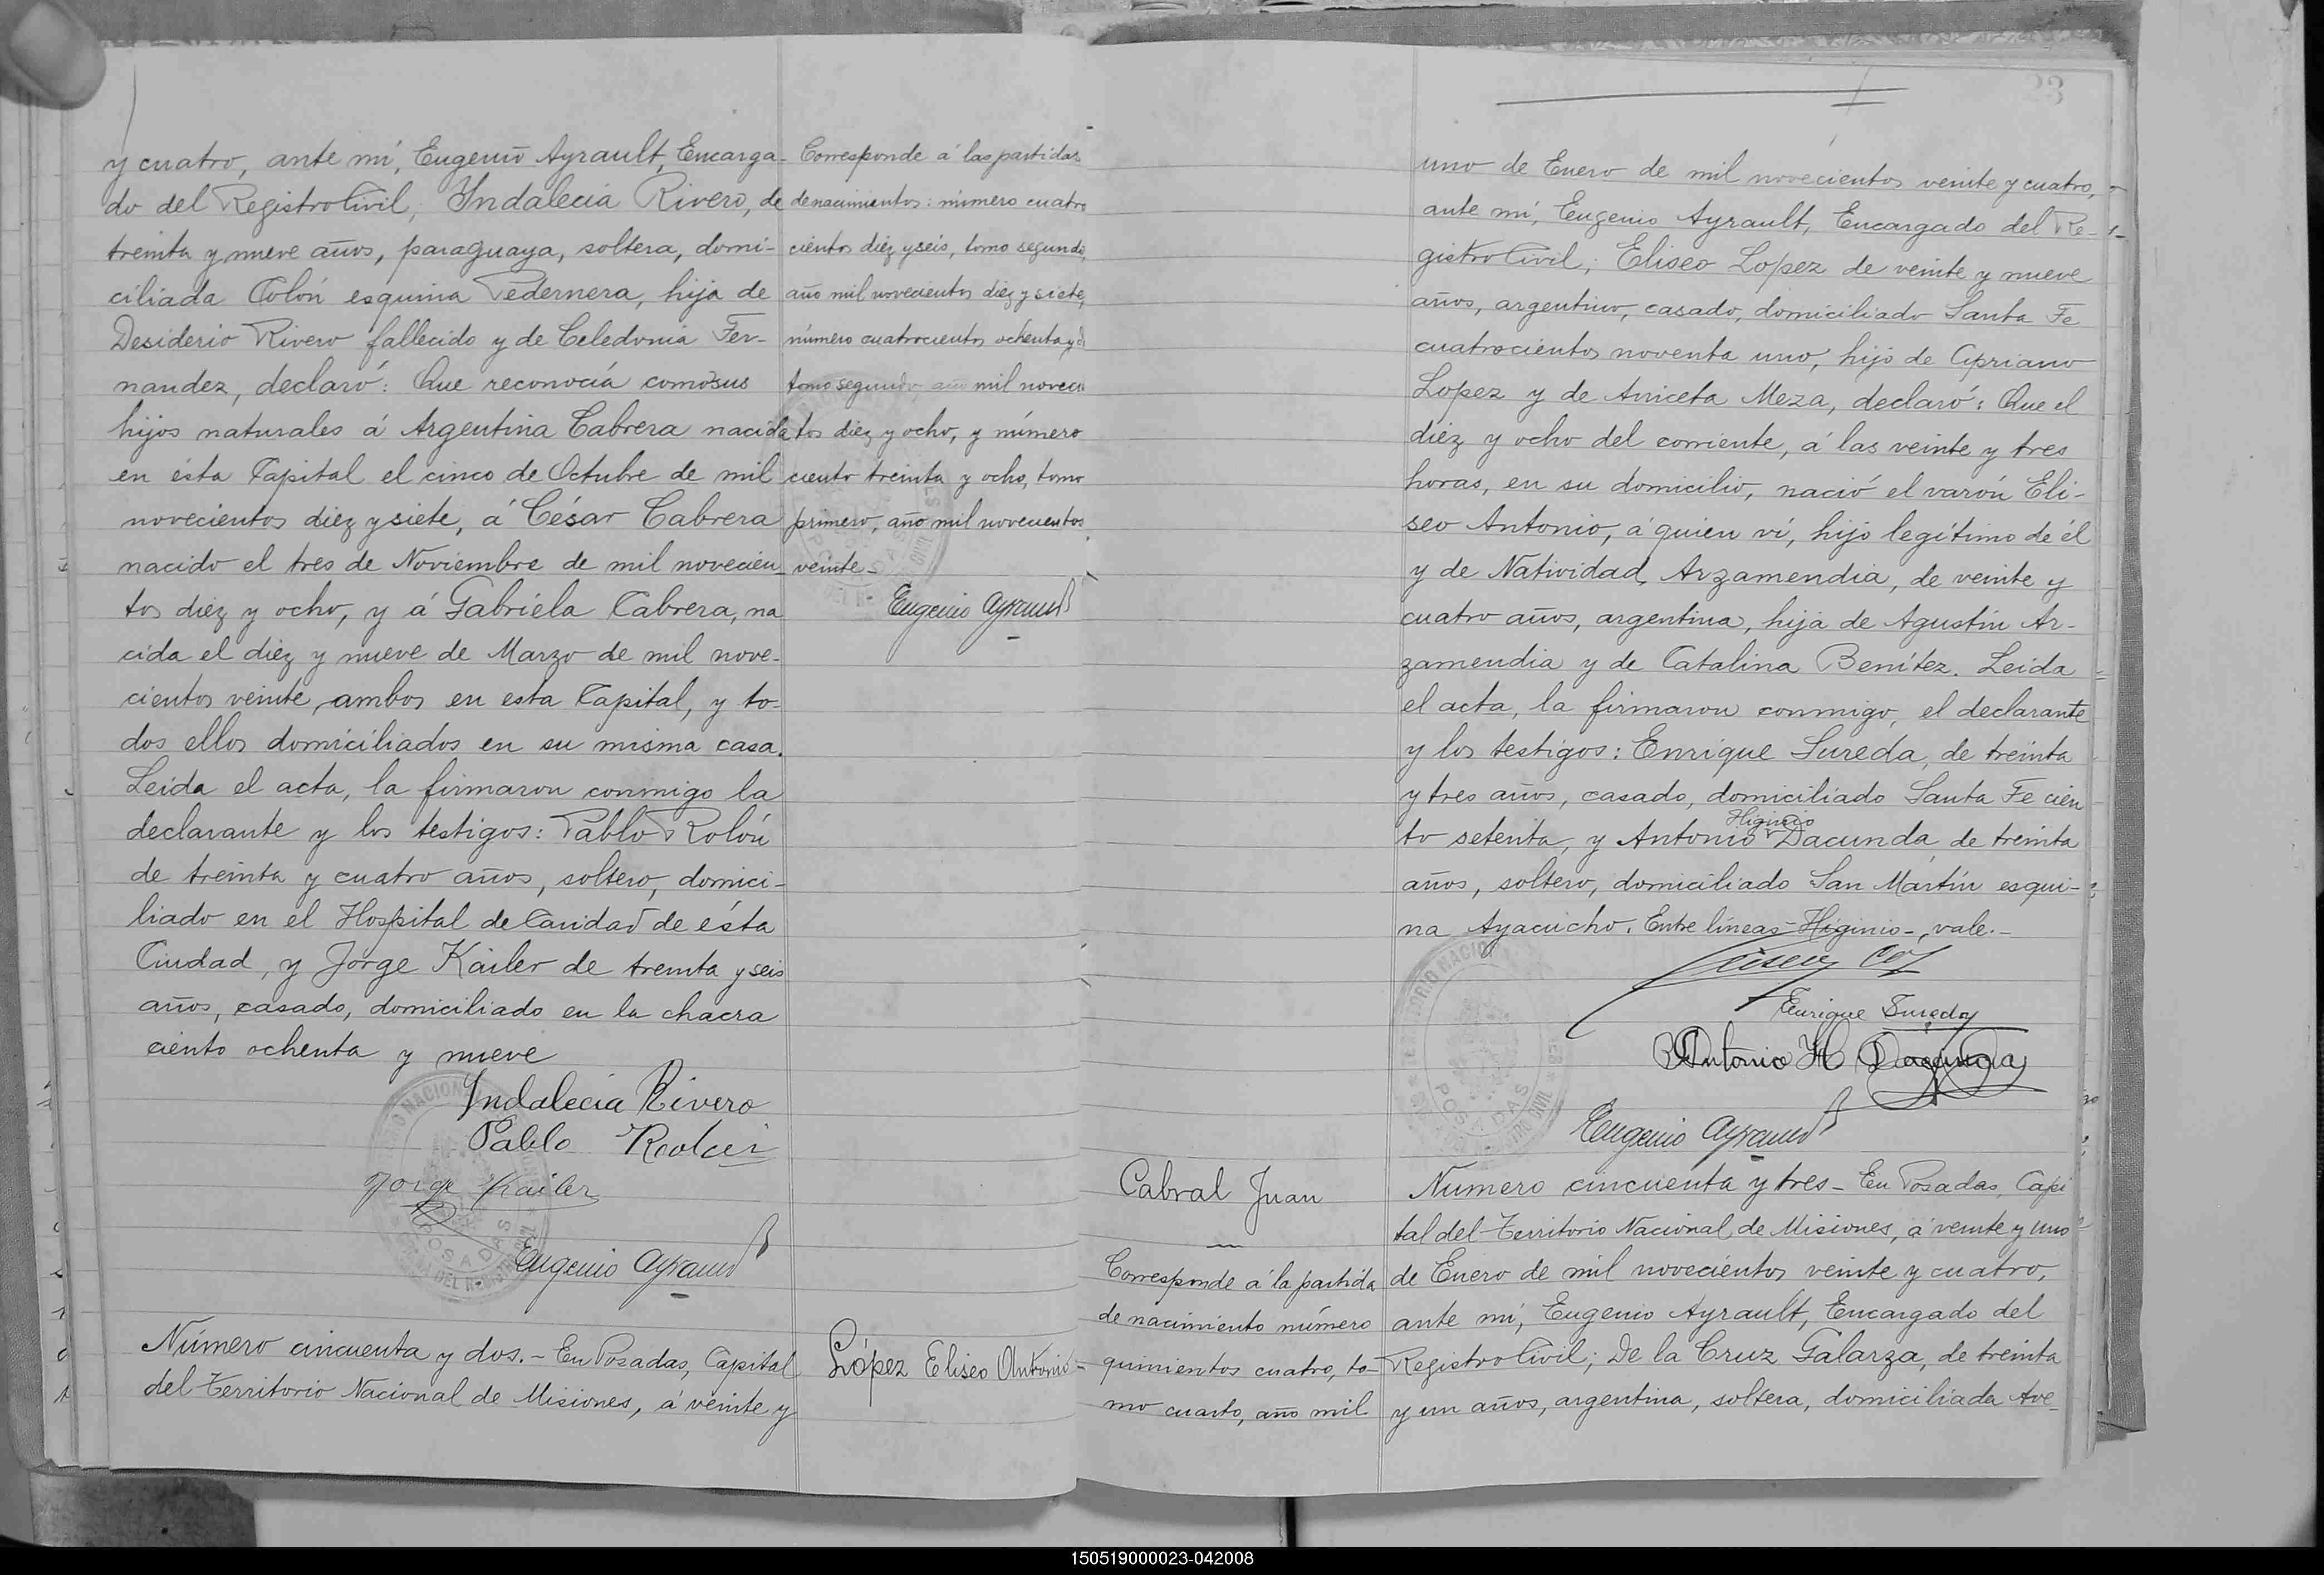 y cuatro, ante mí, Eugenio Ayrault, Encarga-
do del Registro Civil; Indalecia Rivero, de
treinta y nueve años, paraguaya, soltera, domi-
ciliada Colón esquina Pedernera, hija de
Desiderio Rivero fallecido y de Celedonia Fer-
nandez, declaró: Que reconocía como sus
hijos naturales á Argentina Cabrera nacida
en ésta Capital el cinco de Octubre de mil
novecientos diez y siete, á César Cabrera
nacido el tres de Noviembre de mil novecien
tos diez y ocho, y á Gabriela Cabrera, na
cida el diez y nueve de Marzo de mil nove-
cientos veinte, ambos en esta Capital, y to-
dos ellos domiciliados en su misma casa.
Leida el acta, la firmaron conmigo la
declarante y los testigos: Pablo Rolón
de treinta y cuatro años, soltero, domici-
liado en el Hospital de Caridad de ésta
Ciudad, y Jorge Kailer de treinta y seis
años, casado, domiciliado en la chacra
ciento ochenta y nueve
Indalecia Rivero
Pablo
Jorge Kailer
POSADAS
Eugenio Ayrault
Número cincuenta y dos.- En Posadas, Capital
del Territorio Nacional de Misiones, á veinte y
Corresponde á las partidas
de nacimientos: número cuatro
cientos diez y seis, tomo segundo,
año mil novecientos diez y siete,
número cuatrocientos ochenta y
tomo segundo, año mil novecien
tos diez y ocho, y número
ciento treinta y ocho, tomo
primero, año mil novecientos
veinte-
Eugenio Ayrault
López Eliseo Antonio-
23
uno de Enero de mil novecientos veinte y cuatro,
ante mí, Eugenio Ayrault, Encargado del Re-
gistro Civil; Eliseo Lopez de veinte y nueve
años, argentino, casado, domiciliado Santa Fe
cuatrocientos noventa uno, hijo de Cipriano
Lopez y de Aniceta Meza, declaró: Que el
diez y ocho del corriente, á las veinte y tres
horas, en su domicilio, nació el varón Eli-
seo Antonio, á quien ví, hijo legítimo de él
y de Natividad Arzamendia, de veinte y
cuatro años, argentina, hija de Agustín Ar-
zamendia y de Catalina Benítez. Leida
el acta, la firmaron conmigo, el declarante
y los testigos: Enrique Sureda, de treinta
y tres años, casado, domiciliado Santa Fe cien
Higinio
to setenta, y Antonio Dacunda, de treinta
años, soltero, domiciliado San Martín esqui-
na Ayacucho. Entre líneas-Higinio-, vale.-
Enrique Sureda
Antonio H Dacunda
POSADAS
Eugenio Ayrault
Cabral Juan
Corresponde á la partida
de nacimiento número
quinientos cuatro, to-
mo cuarto, año mil
Numero cincuenta y tres- En Posadas, Capi
tal del Territorio Nacional de Misiones, á veinte y uno
de Enero de mil novecientos veinte y cuatro,
ante mí, Eugenio Ayrault, Encargado del
Registro Civil; De la Cruz Galarza, de treinta
y un años, argentina, soltera, domiciliada Ave-
150519000023-042008